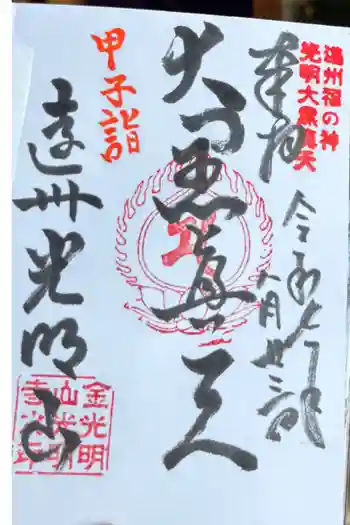 遠州福の神
光明大黒真天
奉拝
令和七年
八月廿三日
大黒真天
甲子詣
遠州光明山
金光明
山光明
寺